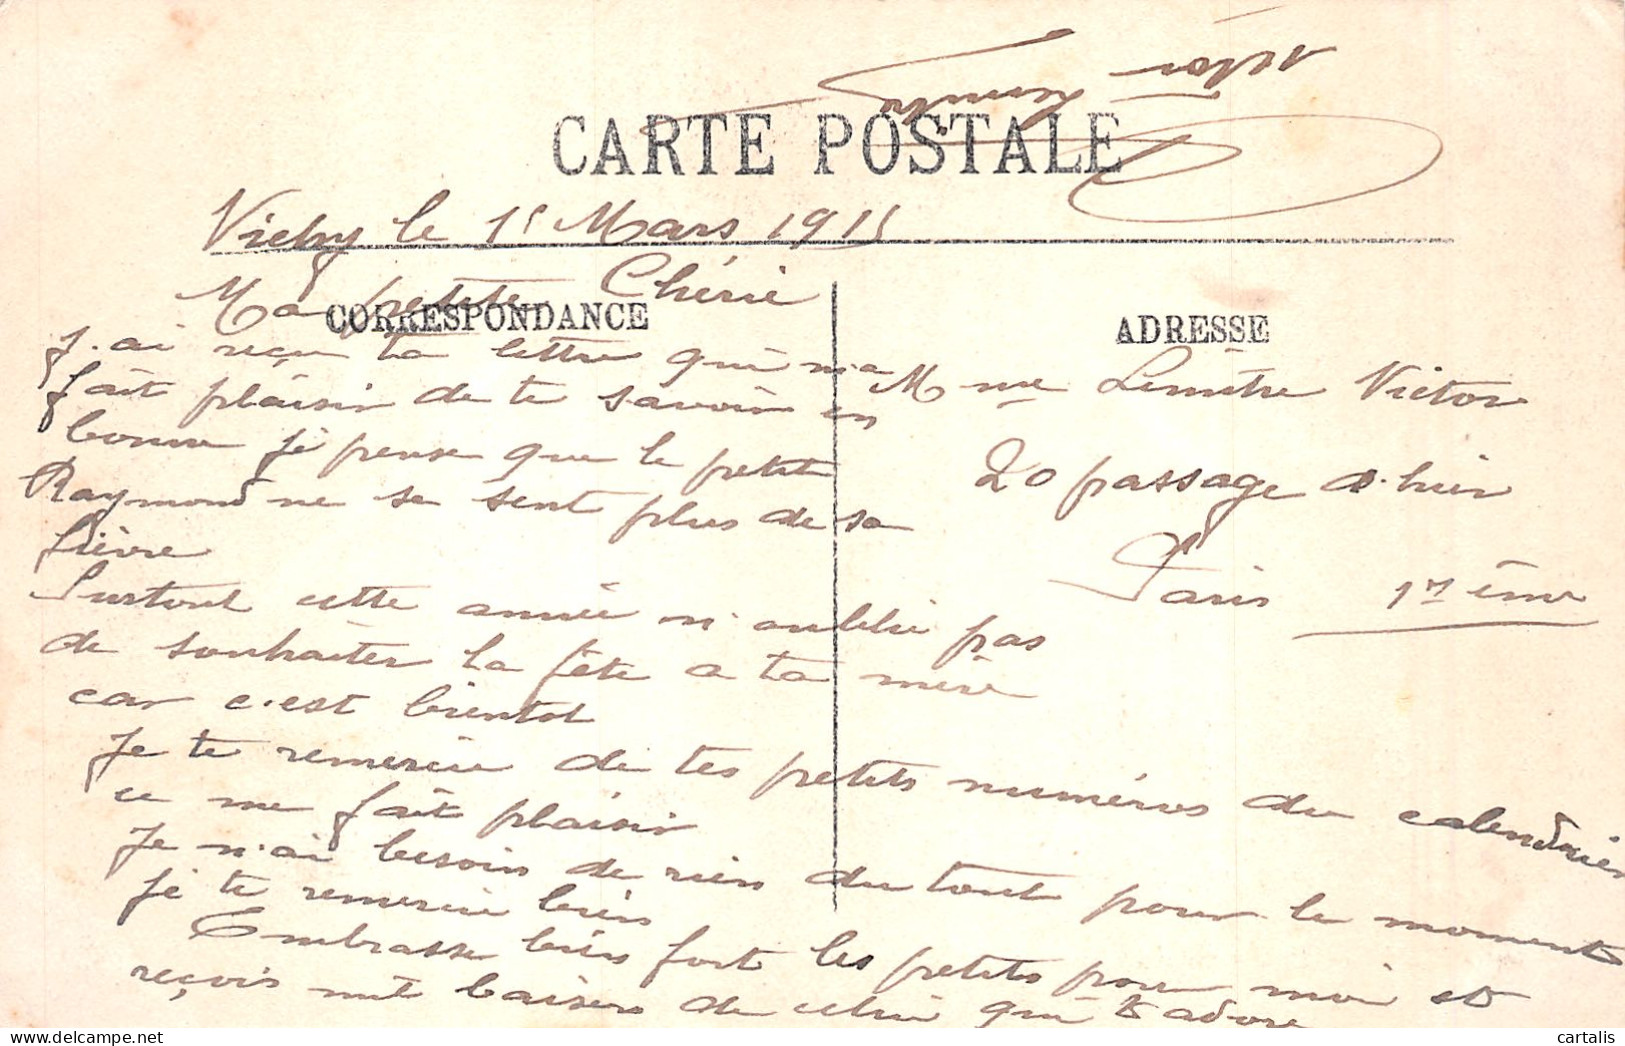 CARTE POSTALE
Victor
Lemître
Vichy le 15 Mars 1915
CORRESPONDANCE
ADRESSE
Ma petite Chérie
J'ai reçu ta lettre qui m'a
fait plaisir de te savoir en
bonne je pense que le petit
Raymond ne se sent plus de sa
fièvre
Surtout cette année n'oublie pas
de souhaiter la fête a ta mère
car c'est bientot
Je te remercie de tes petits numéros du calendrier
ce me fait plaisir
Je n'ai besoin de rien du tout pour le moment
je te remercie bien
Embrasse bien fort les petits pour moi et
reçois mil baisers de celui qui t'adore
Mme Lemître Victor
20 passage
Paris 17 ème
cartalis